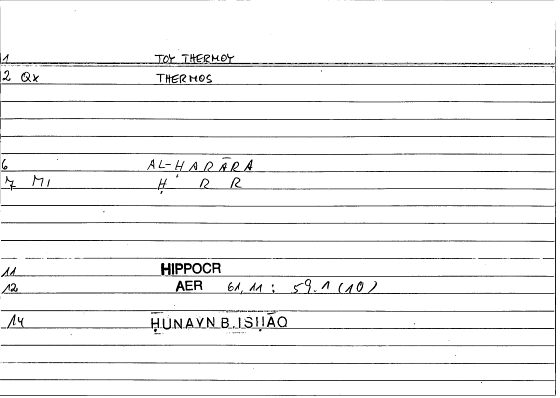 1 TOY THERMOY
2 Qx THERMOS
6 AL-HARĀRA
7 MI Ḥ R R
11 HIPPOCR
12 AER 61,11 : 59.1 (10)
14 ḤUNAYN B.ISḤĀQ